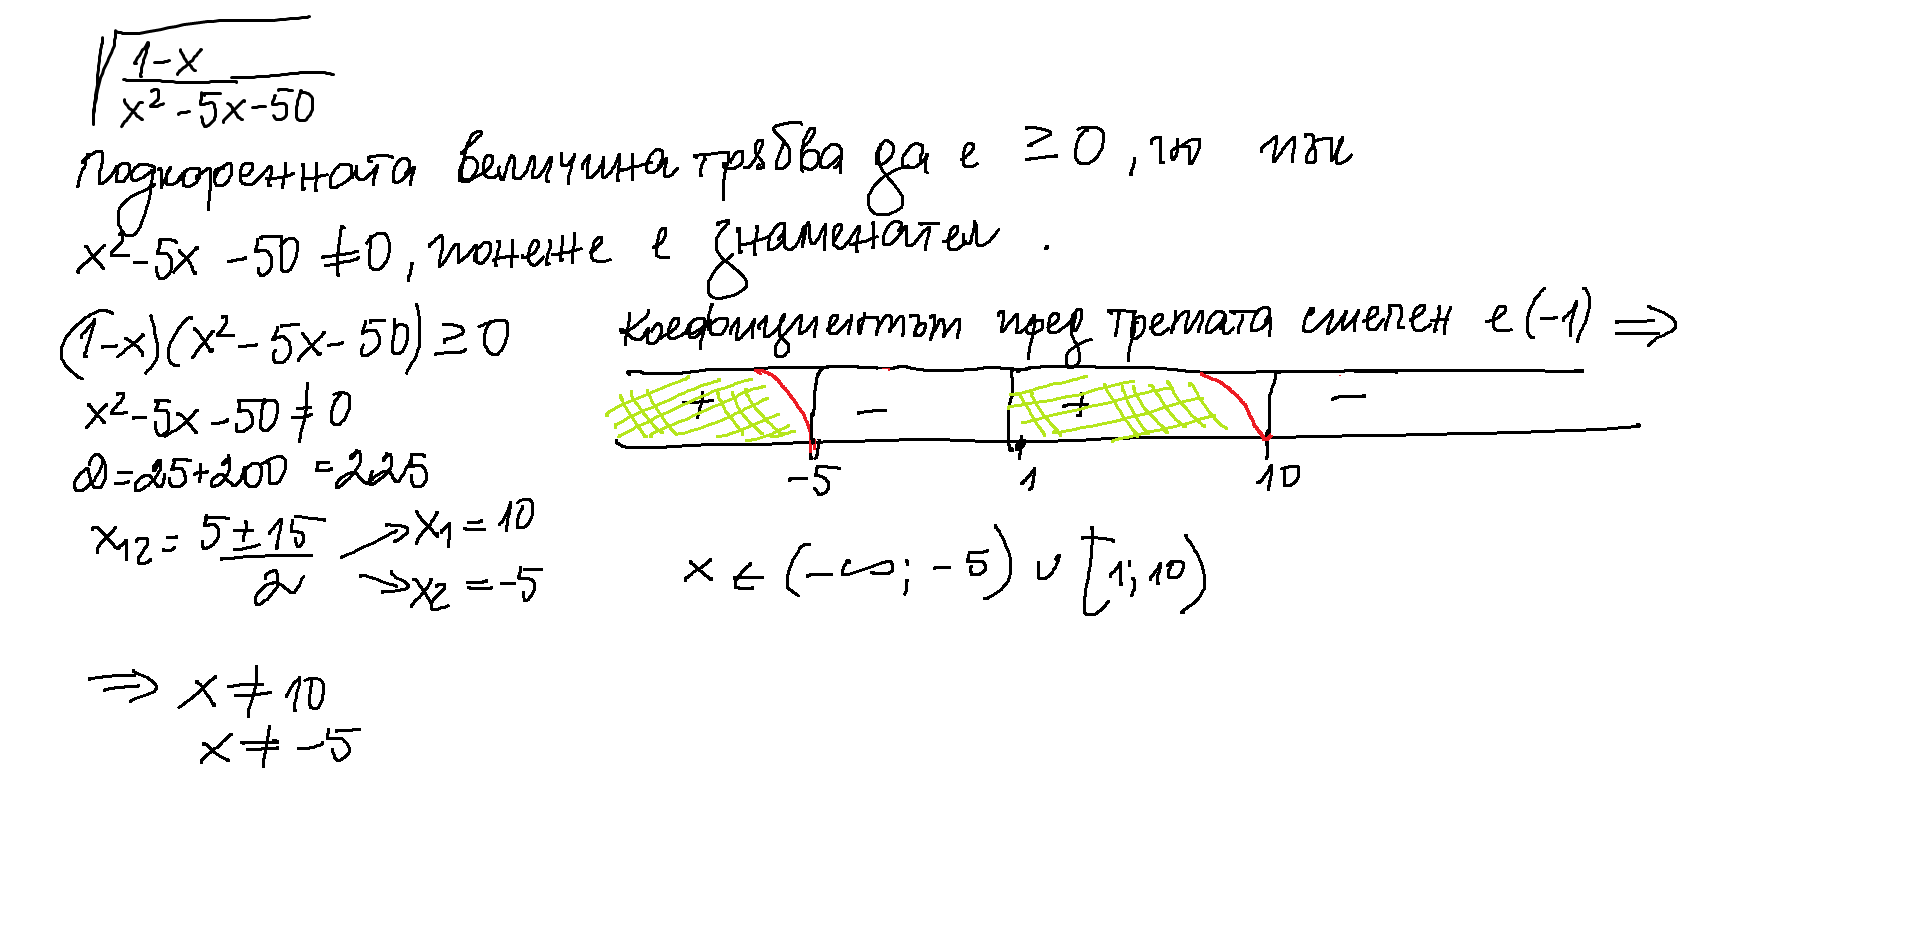 √((1-x)/(x²-5x-50))
Подкоренната величина трябва да е ≥0, но пък
x²-5x-50≠0, понеже е знаменател.
(1-x)(x²-5x-50)≥0
x²-5x-50≠0
D=25+200=225
x₁₂=(5±15)/2 →x₁=10
→x₂=-5
⇒ x≠10
x≠-5
Коефициентът пред третата степен е (-1) ⇒
+ - + -
-5 1 10
x∈(-∞;-5)∪[1;10)